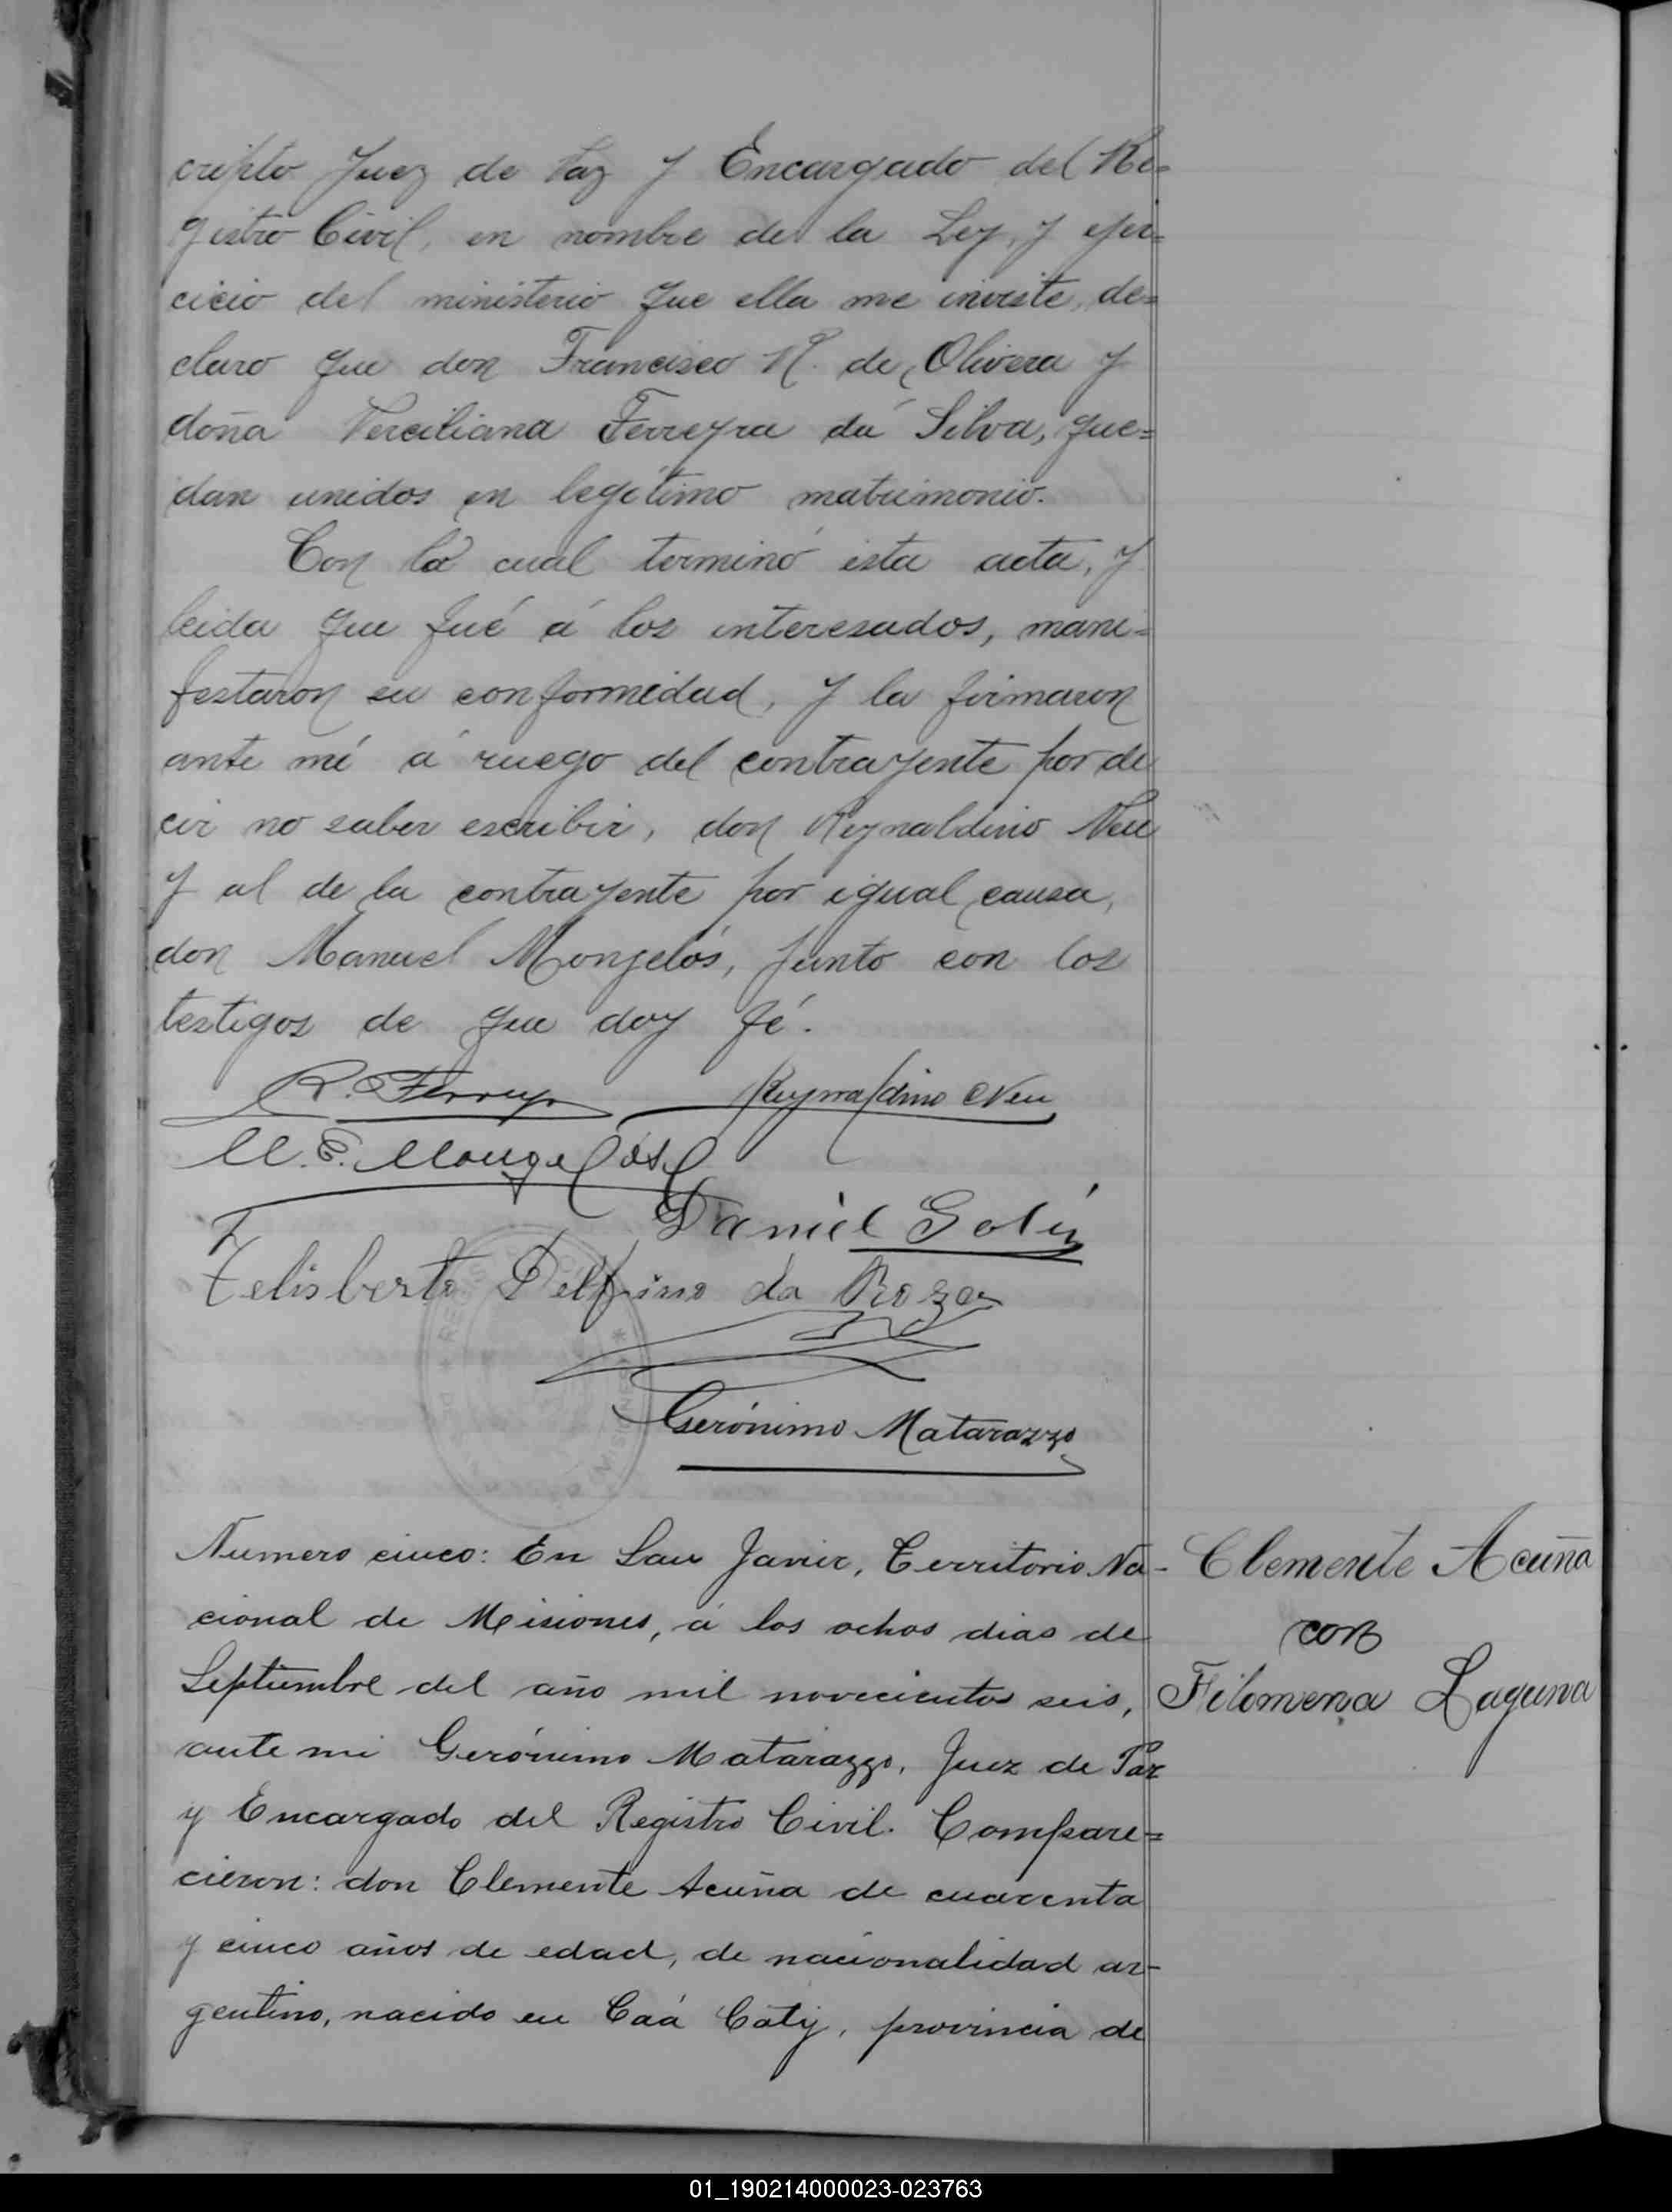 cripto Juez de Paz y Encargado del Re=
gistro Civil, en nombre de la Ley, y ejer=
cicio del ministerio que ella me inviste, de=
claro que don Francisco R. de Olivera y
doña Verciliana Ferreyra da Silva, que=
dan unidos en legítimo matrimonio.
Con lo cual terminó esta acta, y
leida que fué á los interesados, mani=
festaron su conformidad, y la firmaron
ante mi á ruego del contrayente por de
cir no saber escribir, don Reynaldino Neu
y al de la contrayente por igual causa,
don Manuel Mongelós, junto con los
testigos de que doy fé.
R. Ferreyra
Reynaldino Neu
M. E. Mongelós
Daniel
Felisberto Delfino da Roza
Gerónimo Matarazzo
Numero cinco: En San Javier, Territorio Na-
cional de Misiones, á los ochos dias de
Septiembre del año mil novecientos seis,
ante mi Gerónimo Matarazzo, Juez de Paz
y Encargado del Registro Civil. Compare=
cieron: don Clemente Acuña de cuarenta
y cinco años de edad, de nacionalidad ar-
gentino, nacido en Caá Catý, provincia de
Clemente Acuña
con
Filomena Laguna
01_190214000023-023763